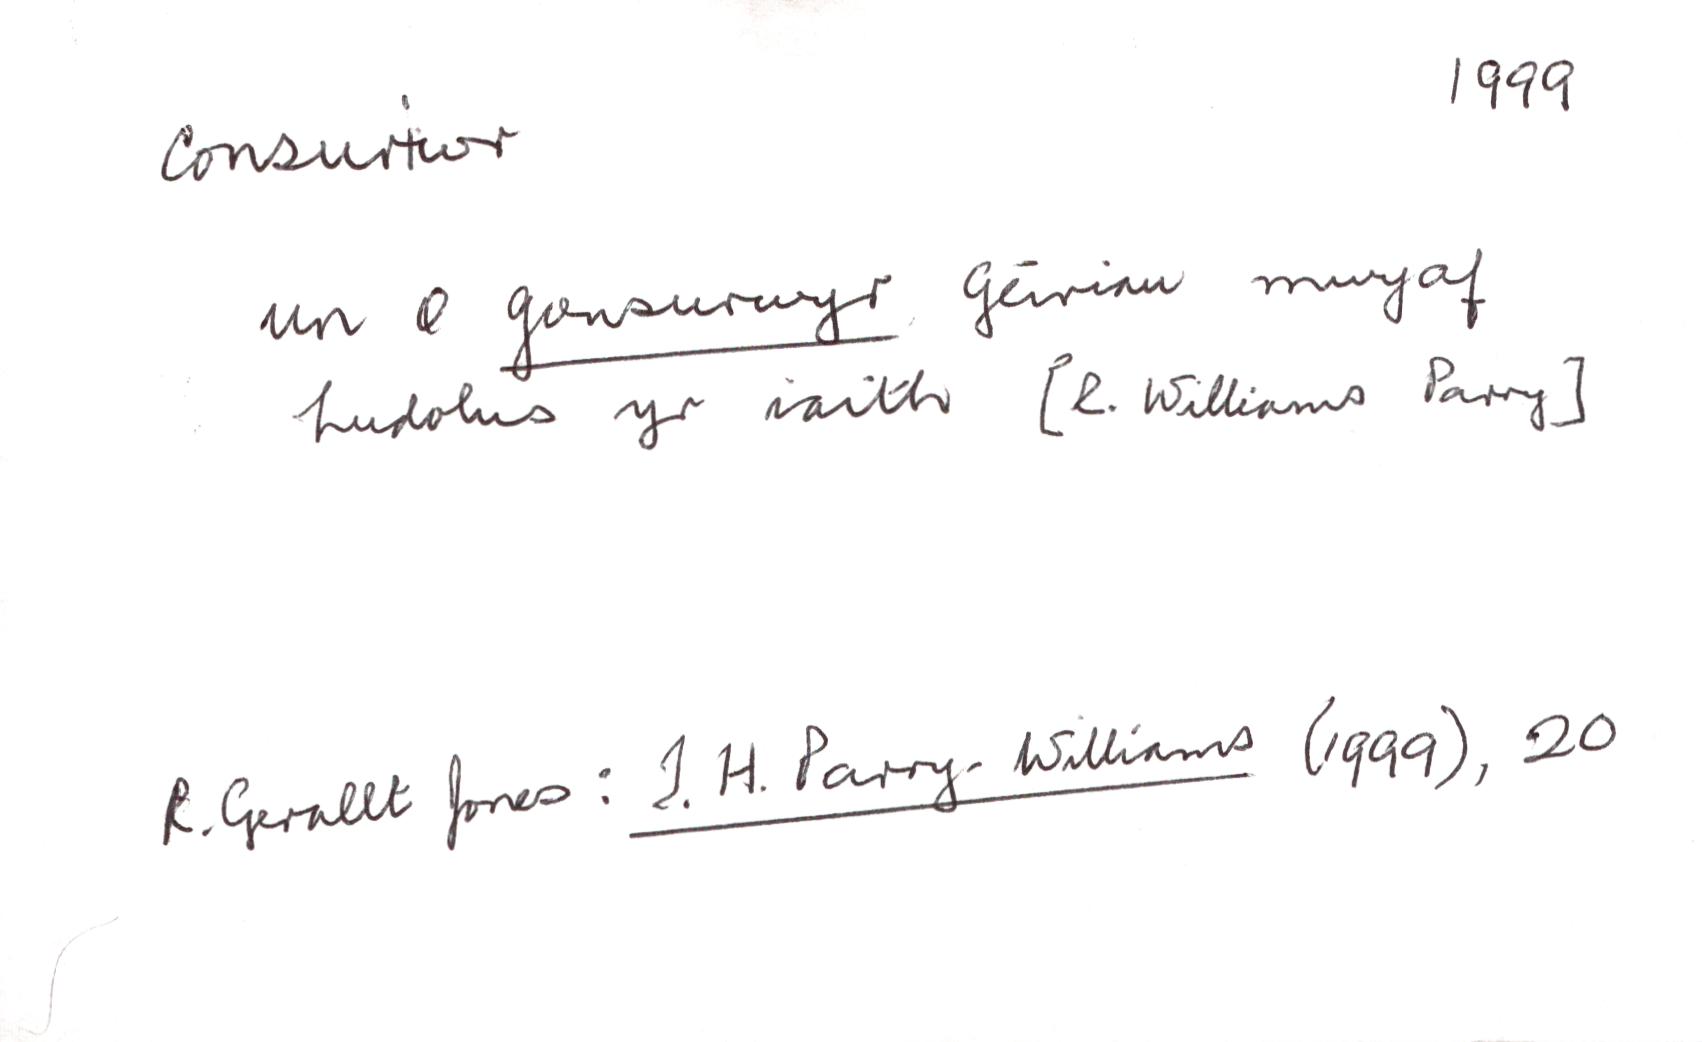 1999
Consuriwr
un o gonsurwyr geiriau mwyaf
hudolus yr iaith [R. Williams Parry]
R. Gerallt Jones: T. H. Parry-Williams (1999), 20